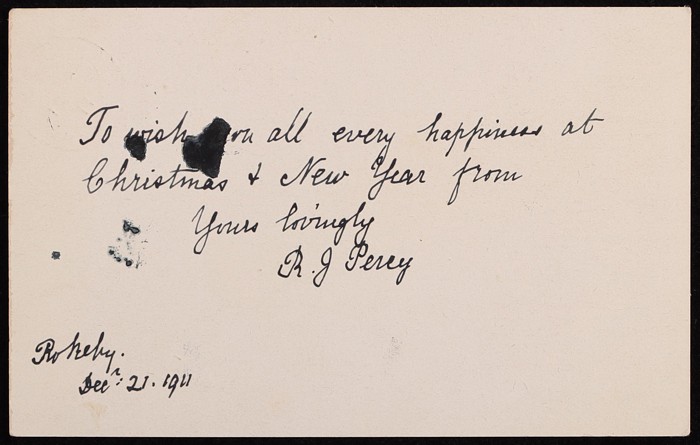 To wish you all every happiness at
Christmas & New Year from
Yours lovingly
R. J Percy
Rokeby.
Decr: 21. 1911